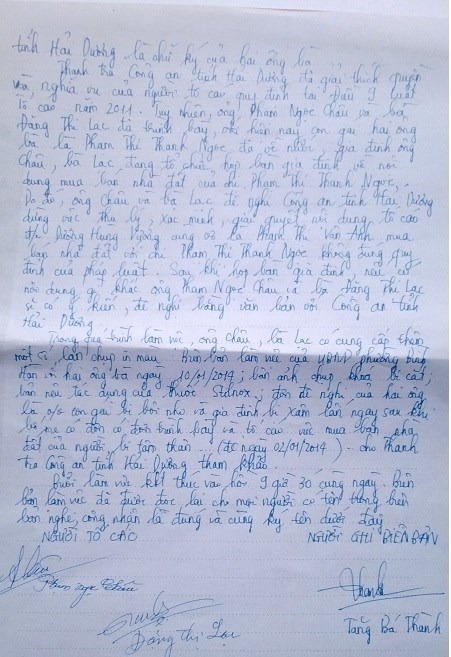 tỉnh Hải Dương là chữ ký của hai ông bà
Thanh tra Công an tỉnh Hải Dương đã giải thích quyền
và nghĩa vụ của người tố cáo quy định tại Điều 9 Luật
Tố cáo năm 2011. Tuy nhiên, ông Phạm Ngọc Châu và bà
Đặng Thị Lạc đã trình bày, do hiện nay con gái hai ông
bà là Phạm Thị Thanh Ngọc đã về nhà, gia đình ông
Châu, bà Lạc đang tổ chức họp bàn gia đình về nội
dung mua bán nhà đất của chị Phạm Thị Thanh Ngọc,
Do đó, ông Châu và bà Lạc đề nghị Công an tỉnh Hải Dương
dừng việc thụ lý, xác minh, giải quyết nội dung tố cáo
đ/c Dương Hùng Vương cùng vợ là Phạm Thị Vân Anh mua
bán nhà đất với chị Phạm Thị Thanh Ngọc không đúng quy
định của pháp luật. Sau khi họp bàn gia đình, nếu có
nội dung gì khác ông Phạm Ngọc Châu và bà Đặng Thị Lạc
sẽ có ý kiến, đề nghị bằng văn bản với Công an tỉnh
Hải Dương.
Trong quá trình làm việc, ông Châu, bà Lạc có cung cấp thêm
một số bản chụp in màu Biên bản làm việc của UBND phường
Hàn với hai ông bà ngày 10/01/2014; bản ảnh chụp khoá bị cắt,
bản nêu tác dụng của thuốc Stilnox; đơn đề nghị của hai ông
bà v/v con gái bị bôi nhọ và gia đình bị xâm lấn ngay sau khi
bố mẹ có đơn có đơn trình bày và tố cáo việc mua bán nhà
đất của người bị tâm thần... (đề ngày 02/01/2014) - cho Thanh
tra Công an tỉnh Hải Dương tham khảo.
Buổi làm việc kết thúc vào hồi 9 giờ 30 cùng ngày. Biên
bản làm việc đã được đọc lại cho mọi người có tên trong biên
bản nghe, công nhận là đúng và cùng ký tên dưới đây
NGƯỜI TỐ CÁO NGƯỜI GHI BIÊN BẢN
Phạm Ngọc Châu
Thanh
Đặng Thị Lạc
Tăng Bá Thành